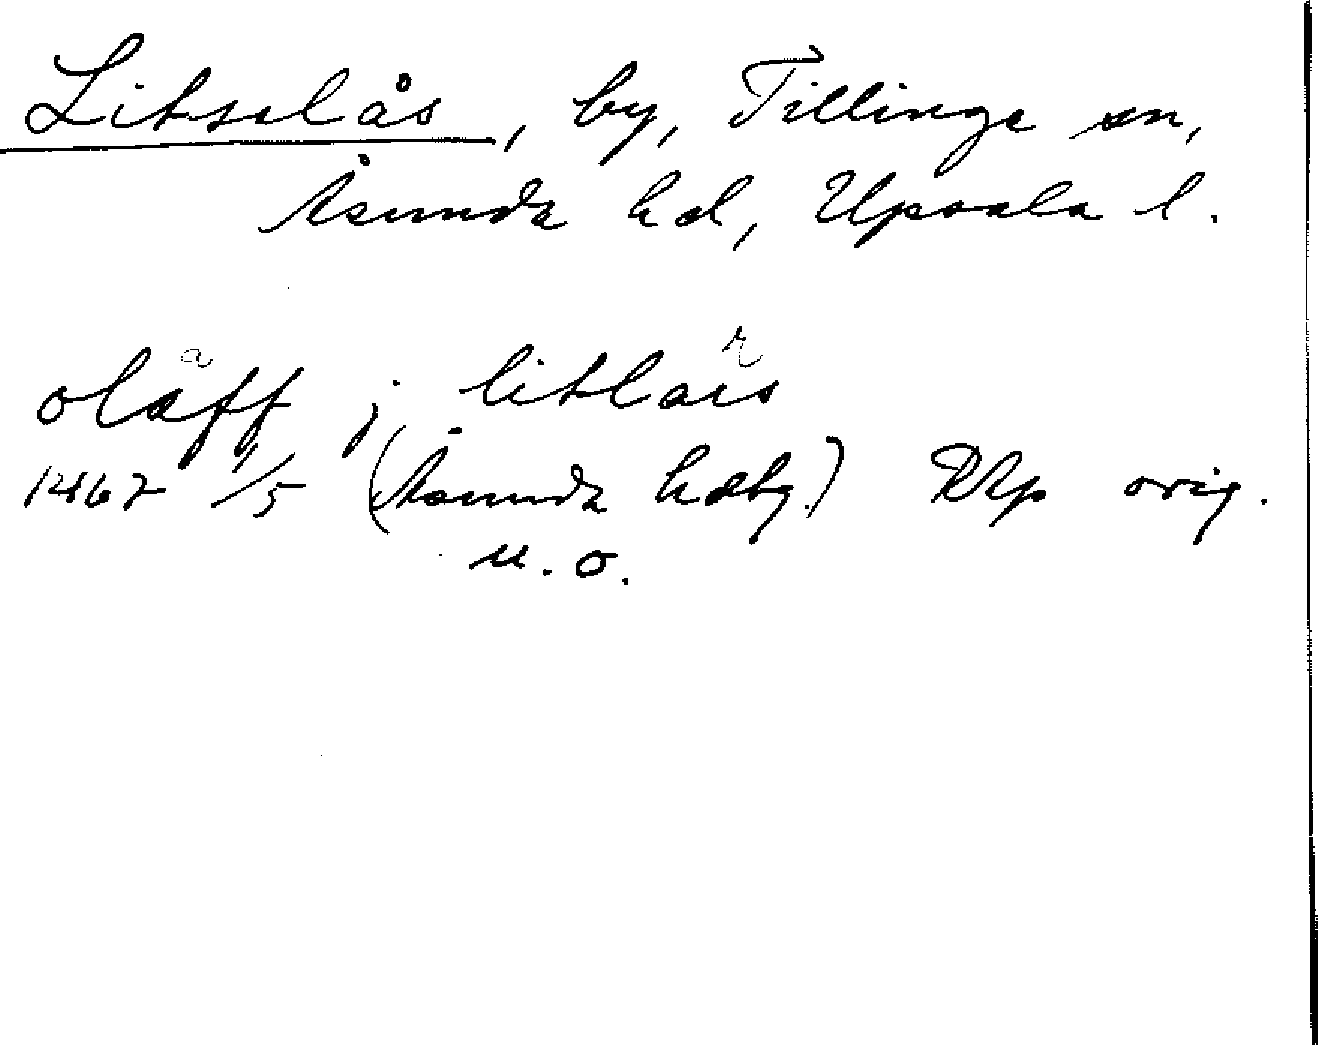 Litselås, by, Tillinge sn,
Åsunda hd, Upsala l.
oläff j litlars
1467 1/5 (Åsunda hdtg.) RAp orig.
u.o.